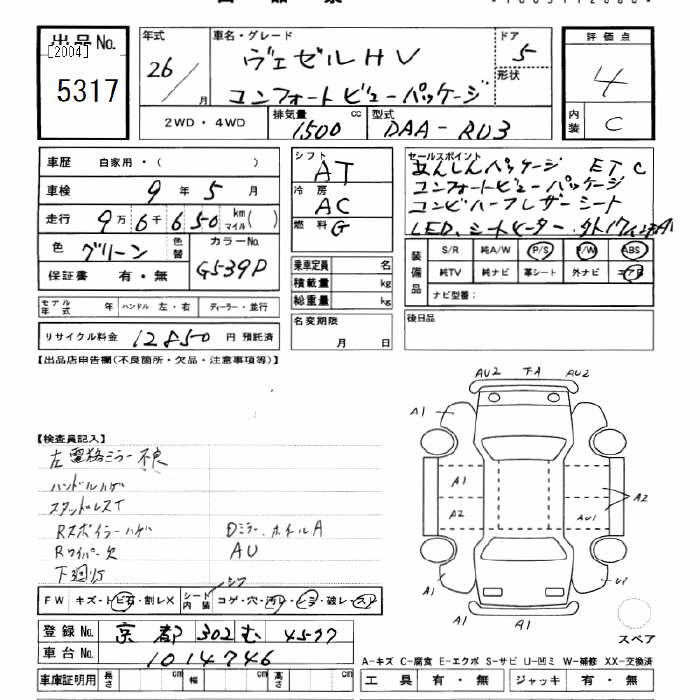 出品No.
[2004]
5317
年式
26/月
車名・グレード
ヴェゼルHV
コンフォートビューパッケージ
ドア
5
形状
評価点
4
内装
C
2WD・4WD
排気量
1500 cc
型式
DAA-RU3
車歴 自家用・( )
車検 9年5月
走行 9万6千650 km マイル( )
色 グリーン 色替
カラーNo.
G539P
保証書 有・無
モデル年式 年 ハンドル 左・右 ディーラー・並行
リサイクル料金 12850円 預託済
シフト AT
冷房 AC
燃料 G
乗車定員 名
積載量 kg
総重量 kg
名変期限
月 日
セールスポイント
あんしんパッケージ ETC
コンフォートビューパッケージ
コンビハーフレザーシート
LED、シートヒーター
装備品
S/R 純A/W P/S P/W ABS
純TV 純ナビ 革シート 外ナビ エアB
ナビ型番:
後日品
【出品店申告欄(不良箇所・欠品・注意事項等)】
【検査員記入】
左電格ミラー不良
ハンドルハゲ
Rスポイラーハゲ
Dミラー、ホイルA
Rワイパー欠
AU
下廻りS
FW キズ・ト ビ石・割レX
シート内装 シワ コゲ・穴・汚レ・シミ・破レ・スレ
登録No. 京都 302 む 4577
車台No. 1014746
車庫証明用 長さ cm 幅 cm 高さ cm
AU2 FA AU2
A1
A1
A2
AU1
A2
A1
U1
A1 A1
スペア
A-キズ C-腐食 E-エクボ S-サビ U-凹ミ W-補修 XX-交換済
工具 有・無 ジャッキ 有・無